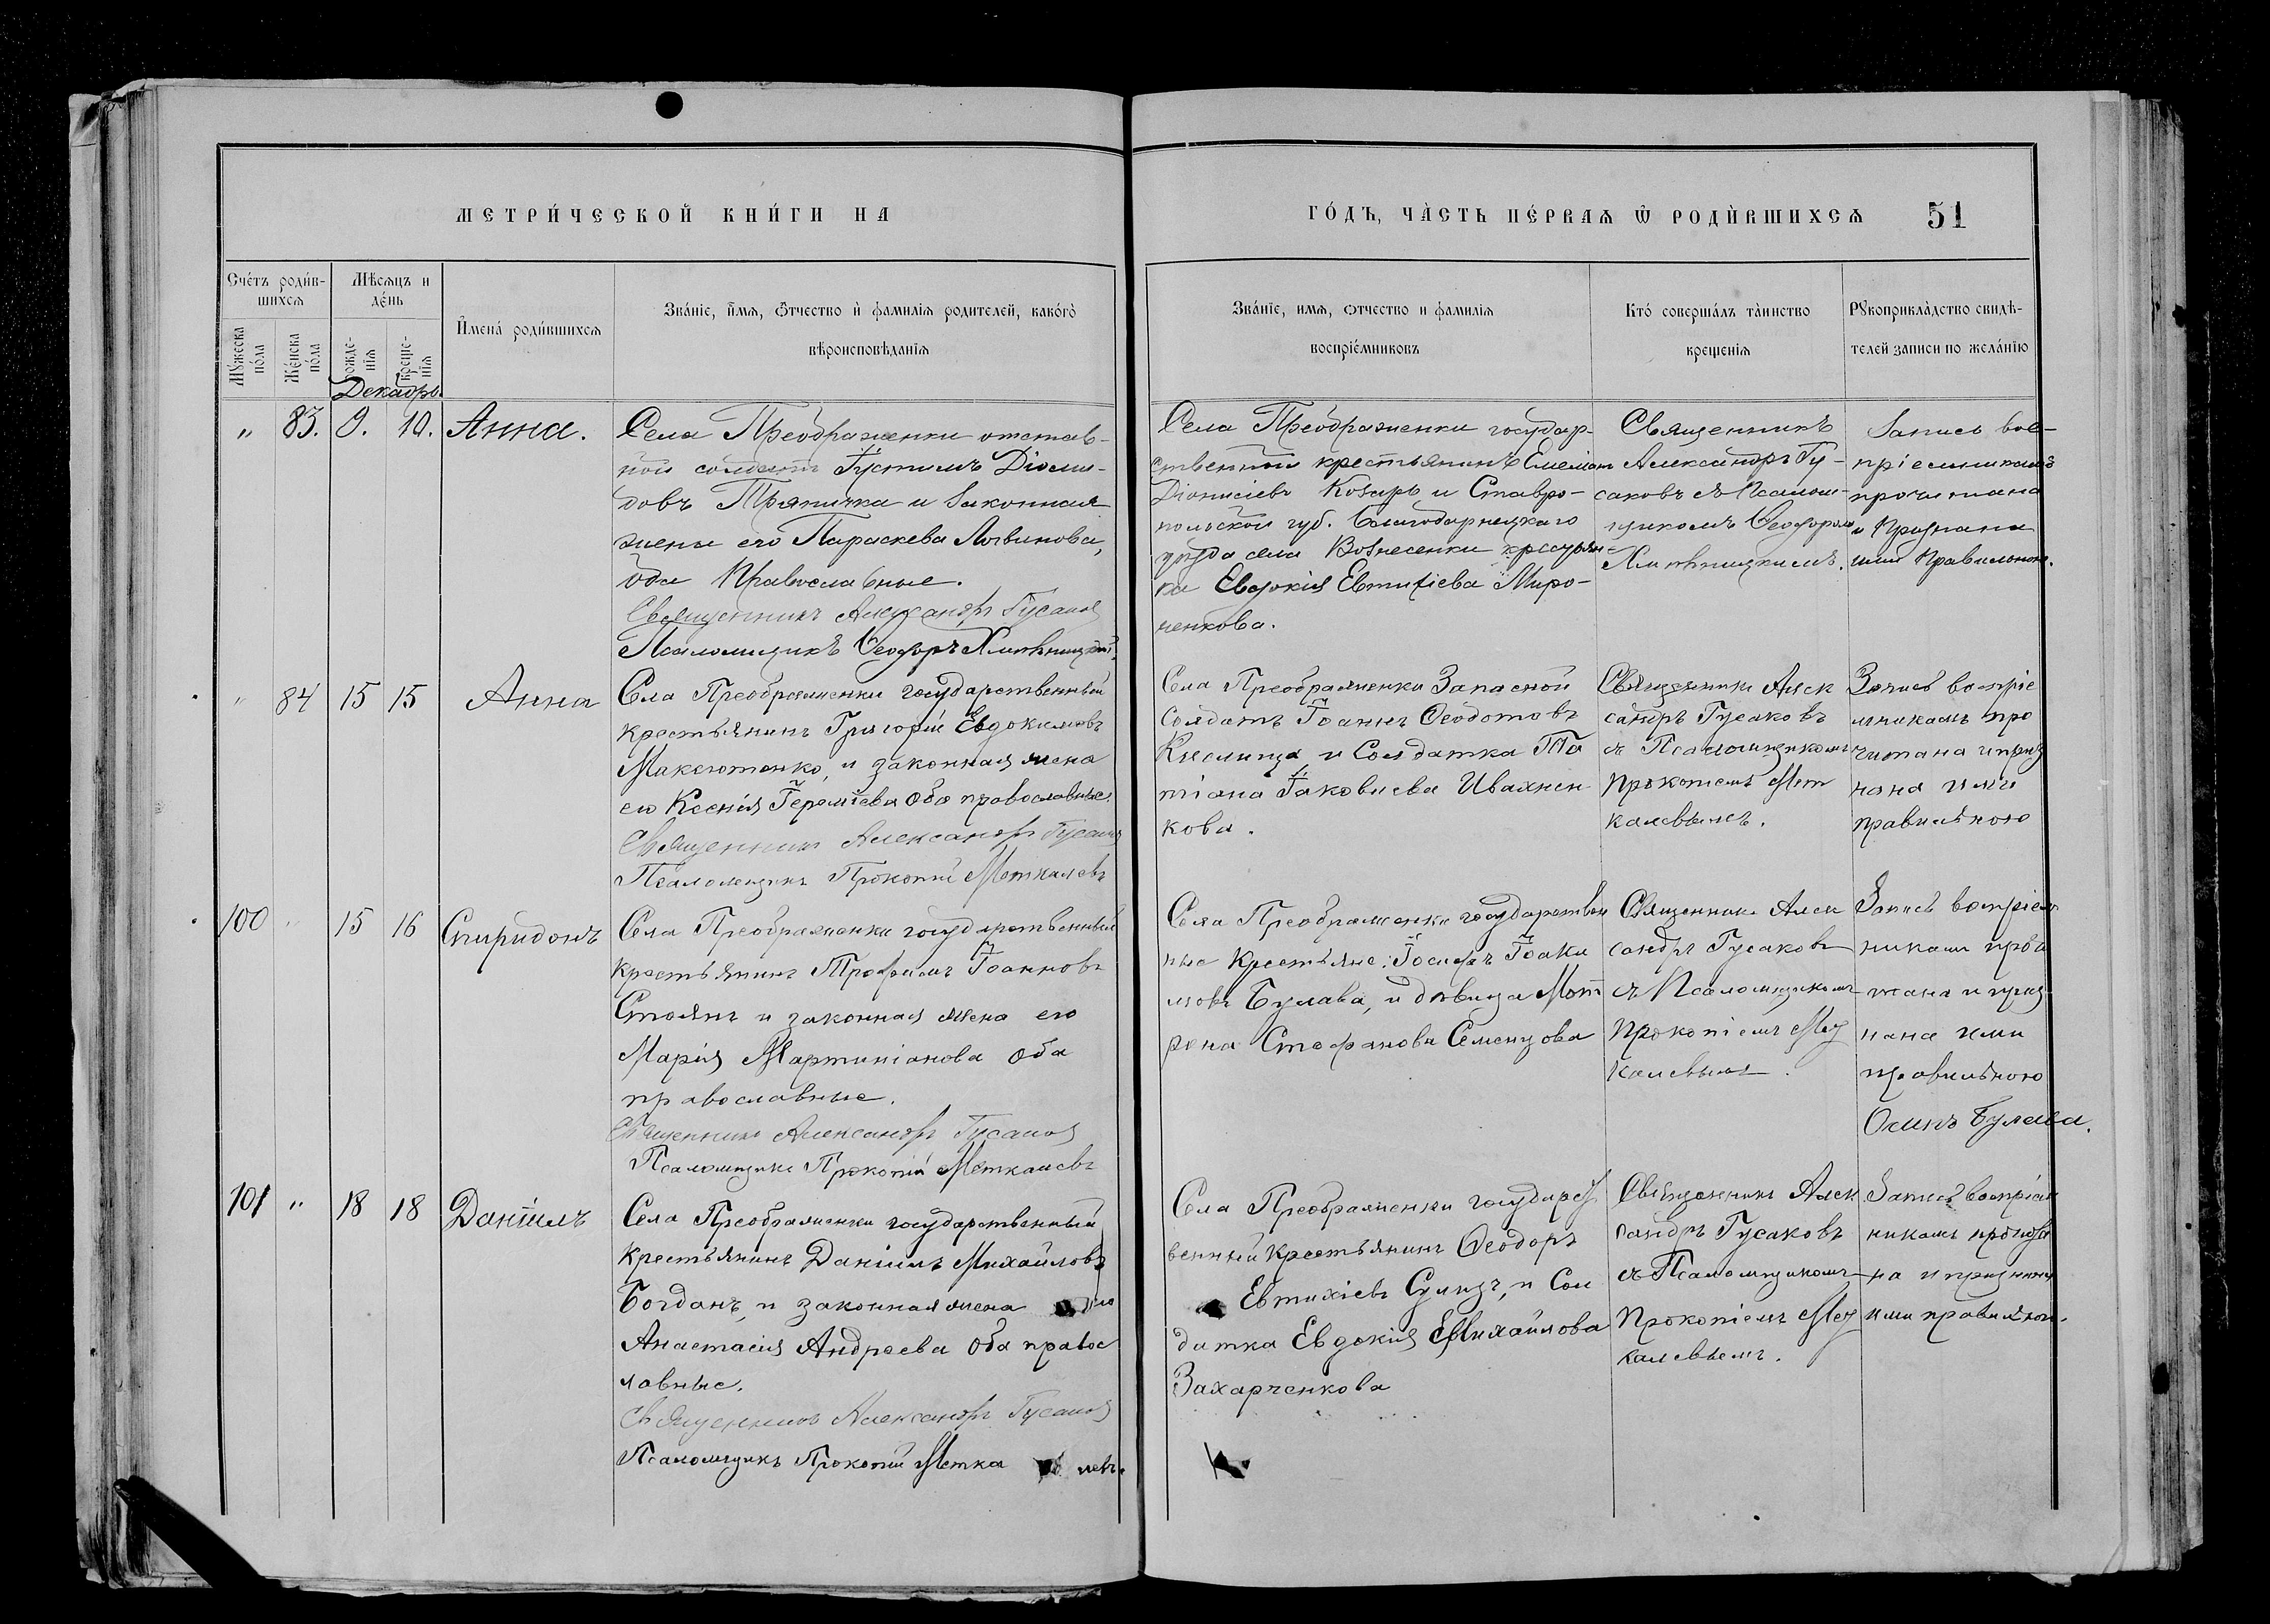 МЕТРИ́ЧЕСКОЙ КНИ́ГИ НА
ГО́ДЪ, ЧА́СТЬ ПЕ́РВАѦ Ѿ РОДИ́ВШИХСѦ 51
Сче́тъ роди́в-
шихсѧ
Мꙋ́жеска
по́ла
Же́нска
по́ла
Мѣ́сѧцъ и
де́нь
рожде-
нїѧ
креще-
нїѧ
Имена́ роди́вшихсѧ
Зва́нїе, и҆́мѧ, ѻ҆́тчество и҆ фамилїѧ родителей, како́гѡ
вѣроисповѣ́данїѧ
Зва́нїе, имѧ, ѻтчество и фамилїѧ
воспрїе́мниковъ
Кто́ совершáлъ тáинство
крещенїѧ
Рꙋкоприклáдство свидѣ-
телей записи по желáнїю
Декабрь
" 83. 9. 10. Анна.
Села Преображенки отстав-
ной солдатъ Іустимъ Діоми-
довъ Тряпичка и законная
жена его Параскева Логвинова,
оба Православные.
Священникъ Александръ Гусаковъ
Псаломщикъ Ѳеодоръ Хмѣльницкій
Села Преображенки государ-
ственный крестьянинъ Емеліан
Діонисіевъ Козырь и Ставро-
польской губ. Благодарнецкаго
уѣзда села Вознесенки крестьян-
ка Евдокія Евтихіева Миро-
ненкова.
Священникъ
Александръ Гу-
саковъ съ Псалом-
щикомъ Ѳеодоромъ
Хмѣльницкимъ.
Запись вос-
пріемникамъ
прочитана
и признана
ими правильною.
" 84 15 15 Анна
Села Преображенки государственный
крестьянинъ Григорій Евдокимовъ
Максютенко, и законная жена
его Ксенія Іереміева оба православные.
Священникъ Александръ Гусаковъ
Псаломщикъ Прокопій Меткалевъ
Села Преображенки Запасной
Солдатъ Іоаннъ Ѳеодотовъ
Кислица, и Солдатка Та
тіана Іаковлева Ивахнен
кова.
Священникъ Алек
сандръ Гусаковъ
съ Псаломщикомъ
Прокопіемъ Мет
калевымъ.
Запись воспріе
мникамъ про
читана и приз
нана ими
правильною
100 " 15 16 Спиридонъ
Села Преображенки государственный
крестьянинъ Трофимъ Іоанновъ
Стоянъ и законная жена его
Марія Мартиніанова оба
православные.
Священникъ Александръ Гусаковъ
Псаломщикъ Прокопій Меткалевъ
Села Преображенки государствен
ные крестьяне: Іосифъ Іоаки
мовъ Булава, и дѣвица Мат
рона Стефанова Семенцова
Священникъ Алек
сандръ Гусаковъ
съ Псаломщикомъ
Прокопіемъ Мет
калевымъ.
Запись воспріем
никами прочи
тана и приз
нана ими
правильною
Осипъ Булава.
101 " 18 18 Даніилъ
Села Преображенки государственный
крестьянинъ Даніилъ Михайловъ
Богданъ, и законная жена его
Анастасія Андреева оба правос
лавные.
Священникъ Александръ Гусаковъ
Псаломщикъ Прокопій Метка левъ.
Села Преображенки государст
венный крестьянинъ Ѳеодоръ
Евтихіевъ и Сол
датка Евдокія Михайлова
Захарченкова
Священникъ Алек
сандръ Гусаковъ
съ Псаломщикомъ
Прокопіемъ Мет
калевымъ.
Запись воспріем
никамъ прочита
на и признана
ими правильною.